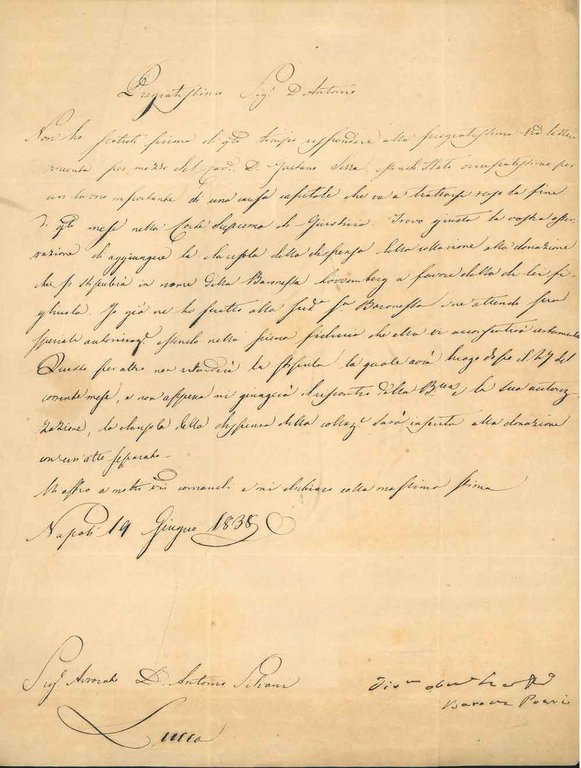 Pregiatissimo Sig.r D. Antonio
Non ho potuto prima di q.to tempo rispondere alla pregiatissima
per mezzo del D. Gaetano Serra, stato occupatissimo per
un lavoro importante di una causa capitale che va a trattarsi verso la fine
di q.to mese nella Corte Suprema di Giustizia. Trovo giusta la vostra osser
vazione di aggiungere la clausola della dispensa della collazione alla donazione
che si stipulerà in nome della Baronessa a favore della di lei fi
gliuola. Io già ne ho scritto alla sud.a S.ra Baronessa e ne attendo
autorizzaz.e essendo nella piena fiducia che ella vi acconsentirà certamente
Questo per altro non ritarderà la stipula la quale avrà luogo dopo il 27 del
corrente mese, e appena mi giungerà il riscontro della B.ssa e la sua autoriz
zazione, la clausola della dispensa della collaz.e sarà inserita alla donazione
con un atto separato.
comandi e mi dichiaro colla massima stima
Napoli 19 Giugno 1838
Sig.r Avvocato D. Antonio
Lucca